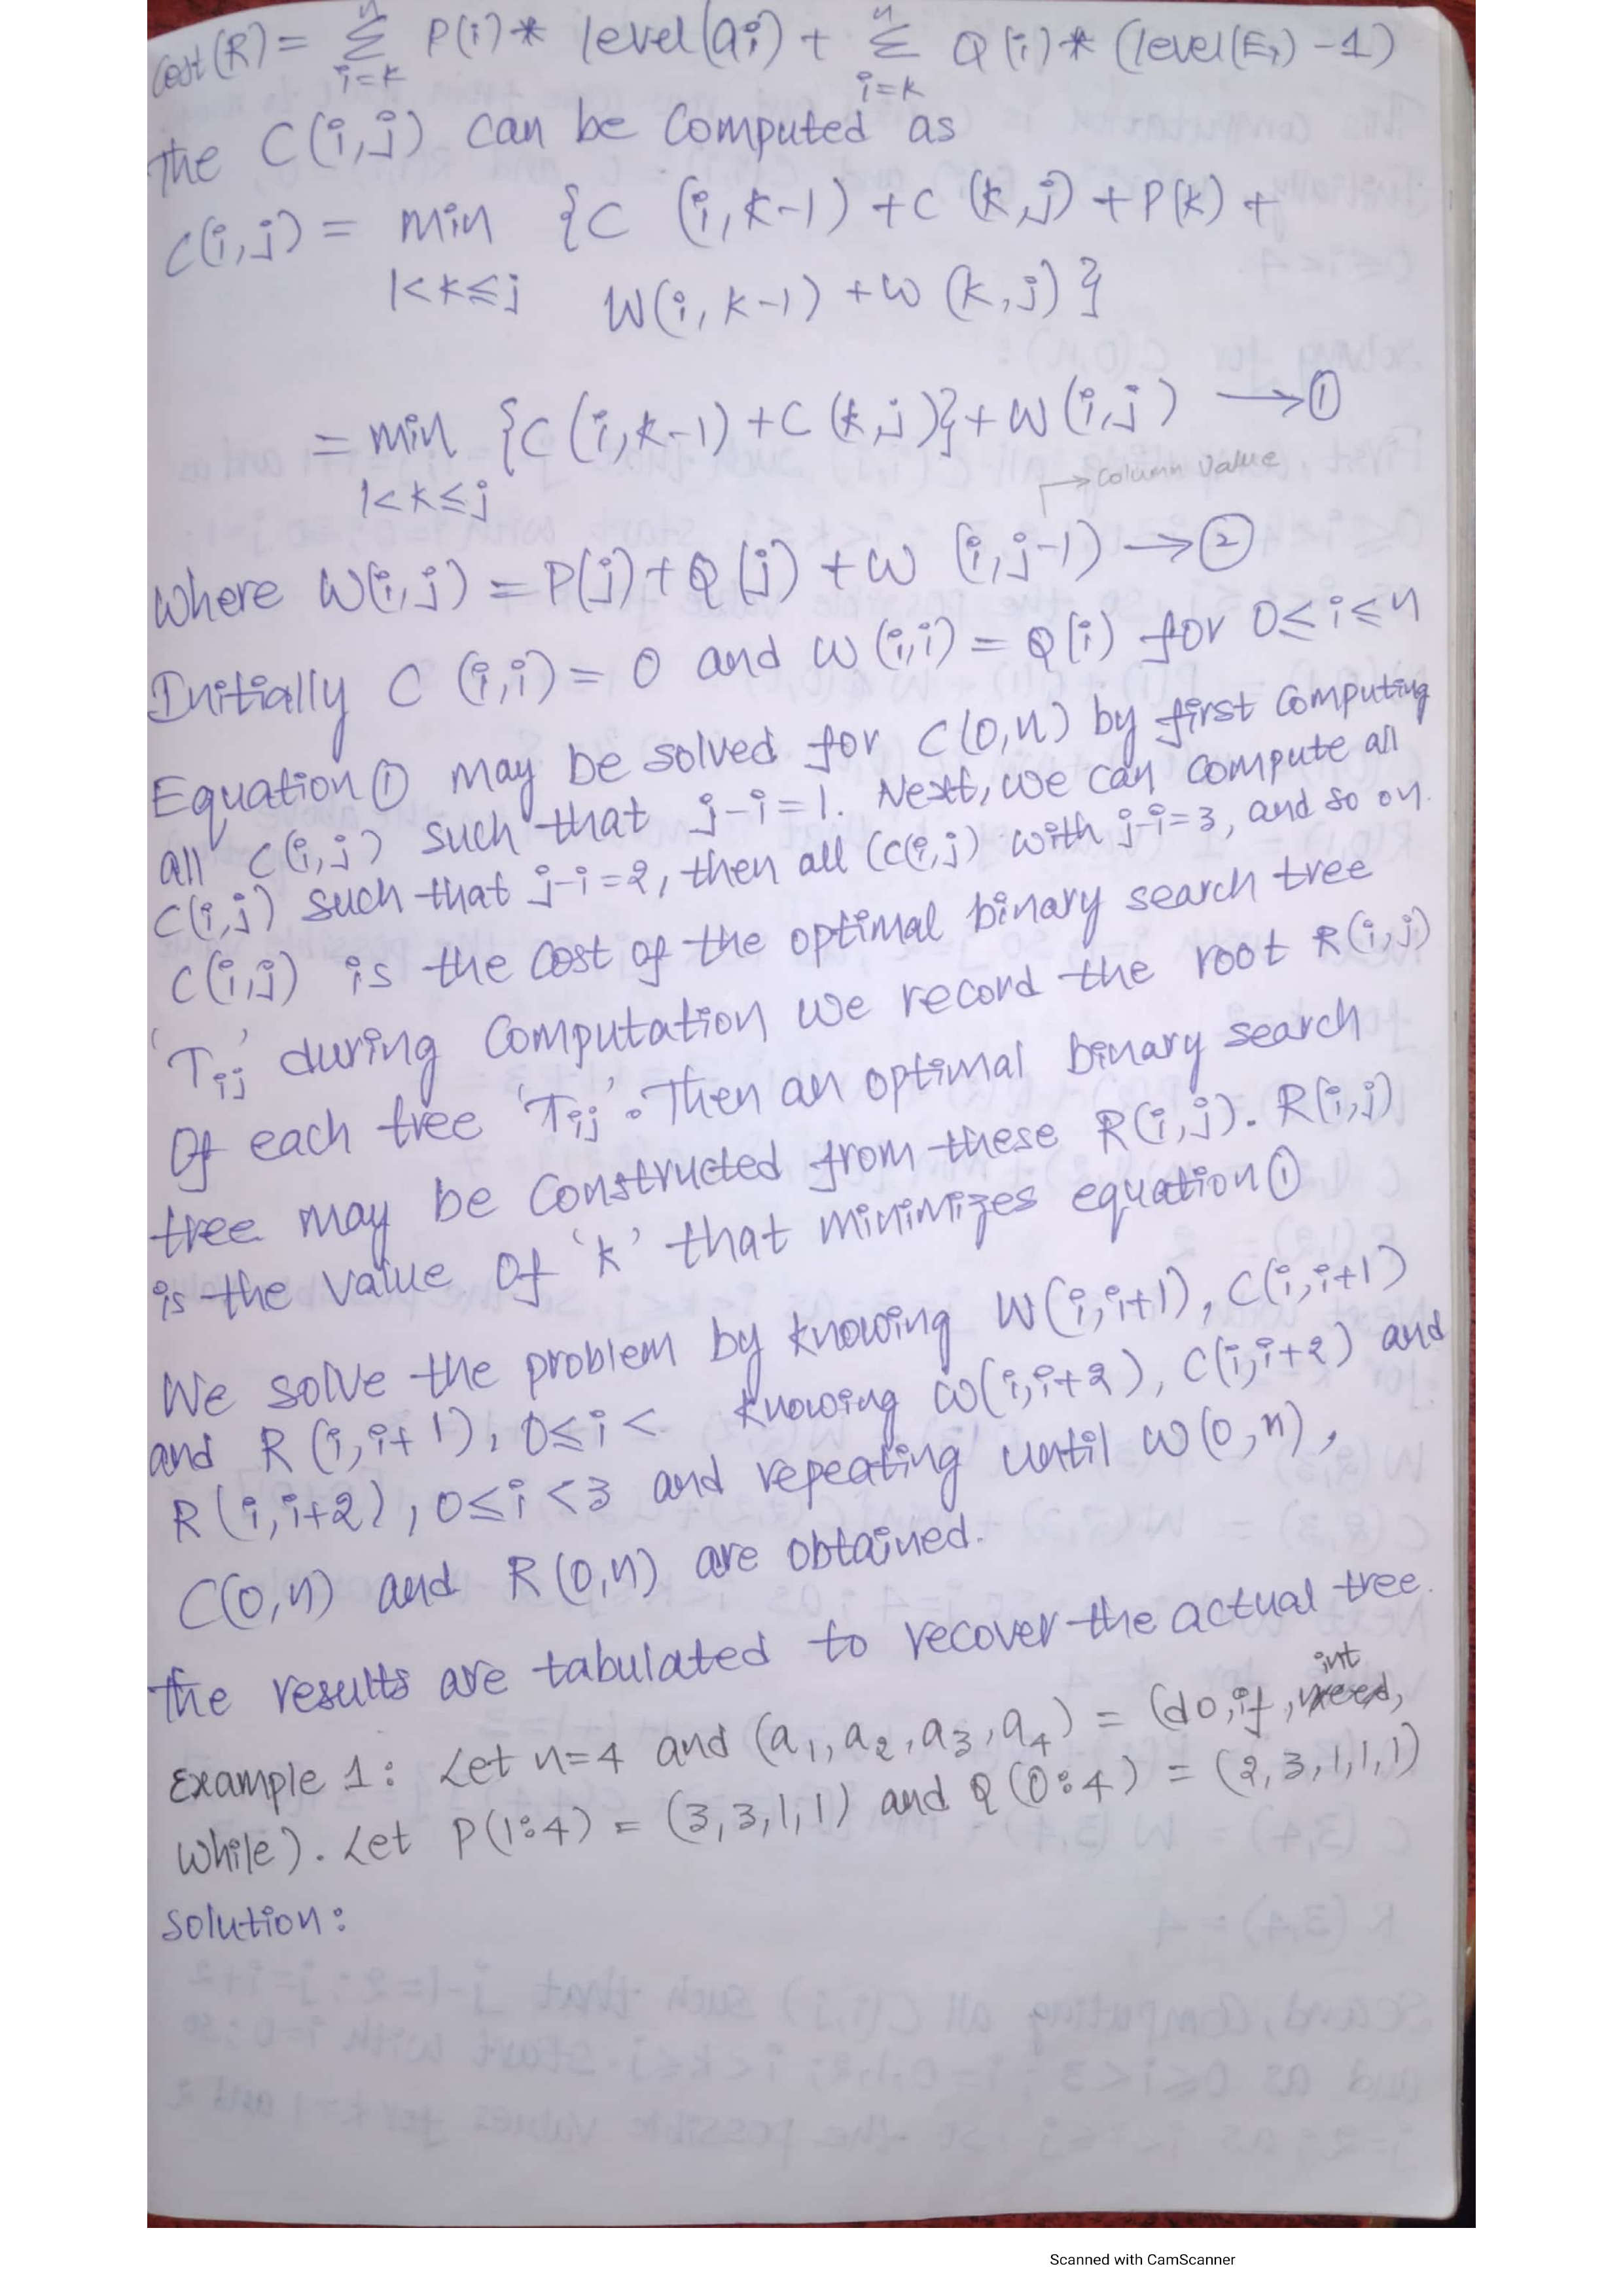 Cost(R) = n Σ i=k P(i)* level(ai) + n Σ i=k Q(i)* (level(Ei) -1)
the C(i,j) can be computed as
C(i,j) = min {C (i,k-1) + C (k,j) + P(k) +
1<k≤j W(i, k-1) + w (k,j) }
= min {C (i,k-1) + C (k,j)} + W (i,j) → ①
→ Column Value
1<k≤j
Where W(i,j) = P(j) + Q(j) + W (i,j-1) → ②
Initially C (i,i) = 0 and W (i,i) = Q(i) for 0≤i≤n
Equation① may be solved for C(0,n) by first computing
all C(i,j) such that j-i=1. Next, we can compute all
C(i,j) such that j-i=2, then all (C(i,j) with j-i=3, and so on.
C(i,j) is the cost of the optimal binary search tree
'Tij' during computation we record the root R(i,j)
Of each tree 'Tij'. Then an optimal binary search
tree may be constructed from these R(i,j). R(i,j)
is the value of 'k' that minimizes equation①
We solve the problem by knowing W(i,i+1), C(i,i+1)
and R (i,i+1), 0≤i< knowing W(i,i+2), C(i,i+2) and
R(i,i+2), 0≤i<3 and repeating until W(0,n),
C(0,n) and R(0,n) are obtained.
the results are tabulated to recover the actual tree.
int
Example 1: Let n=4 and (a1,a2,a3,a4) = (do,if,
While). Let P(1:4) = (3,3,1,1) and Q(0:4) = (2,3,1,1,1)
Solution:
Scanned with CamScanner